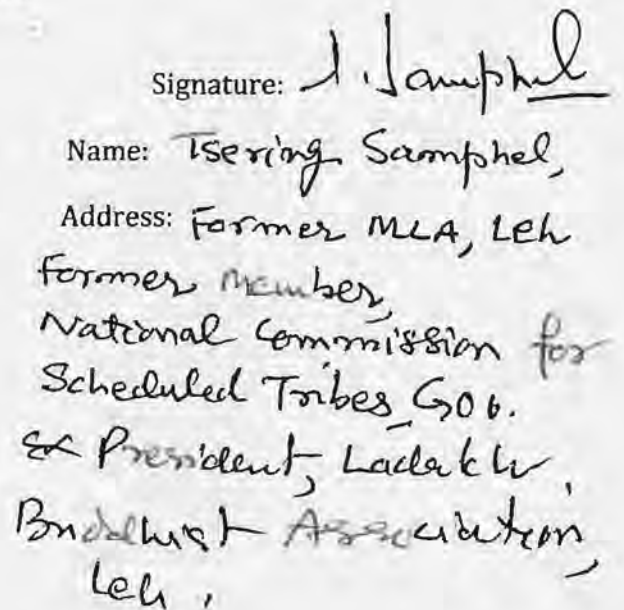 Signature: T. Samphel
Name: Tsering Samphel,
Address: Former MLA, Leh
Former Member,
National Commission for
Scheduled Tribes, GOI.
Ex President, Ladakh
Buddhist Association,
Leh.